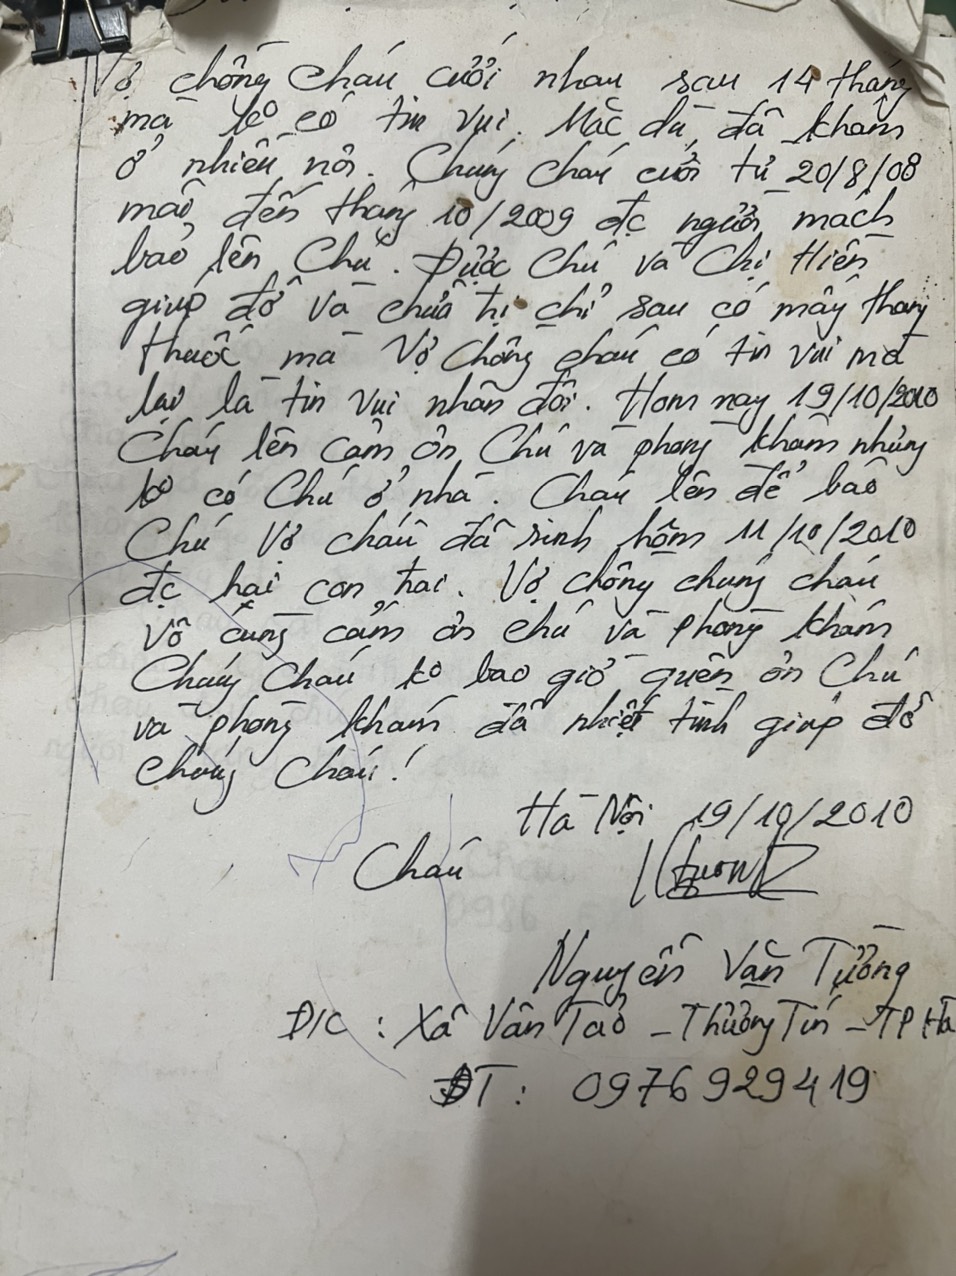 Vợ chồng cháu cưới nhau sau 14 tháng
mà ko có tin vui. Mặc dù đã khám
ở nhiều nơi. Chúng cháu cưới từ 20/8/08
mãi đến tháng 10/2009 đc người mách
bảo lên Chú. Được Chú và Chị Hiền
giúp đỡ và chữa trị chỉ sau có mấy thang
thuốc mà Vợ Chồng cháu có tin vui mà
lại là tin vui nhân đôi. Hôm nay 19/10/2010
Cháu lên cảm ơn Chú và phòng khám nhưng
ko có Chú ở nhà. Cháu lên để báo
Chú Vợ cháu đã sinh hôm 11/10/2010
đc hai con trai. Vợ chồng chúng cháu
vô cùng cảm ơn chú và phòng khám
Chúng Cháu ko bao giờ quên ơn Chú
và phòng khám đã nhiệt tình giúp đỡ
chúng Cháu!
Hà Nội 19/10/2010
Cháu
Nguyễn Văn Tưởng
Đ/C: Xã Vân Tảo - Thường Tín - TP Hà
ĐT: 0976929419